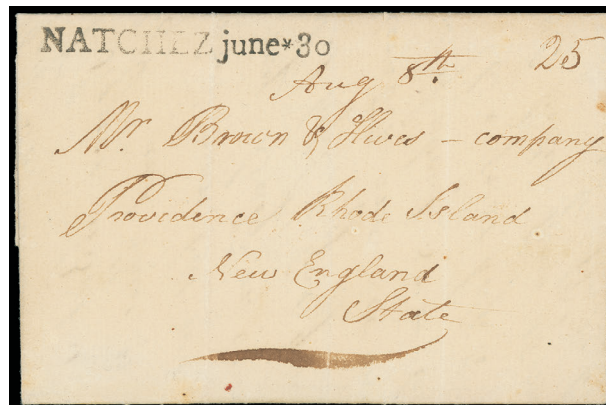 NATCHEZ june*30
Aug 8th. 25
Mr. Brown & Hives - company
Providence Rhode Island
New England
State